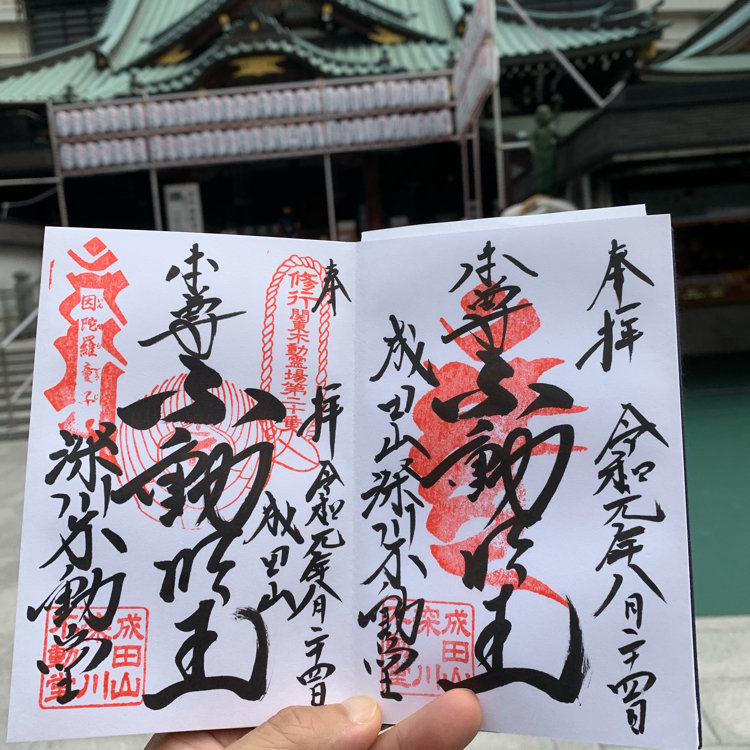 奉拝
令和元年八月二十四日
本尊
不動明王
成田山深川不動堂
成田山
深川
不動堂
奉拝
令和元年八月二十四日
修行
関東不動霊場第二十番
成田山
本尊
不動明王
因陀羅童子
深川不動堂
成田山
深川
不動堂